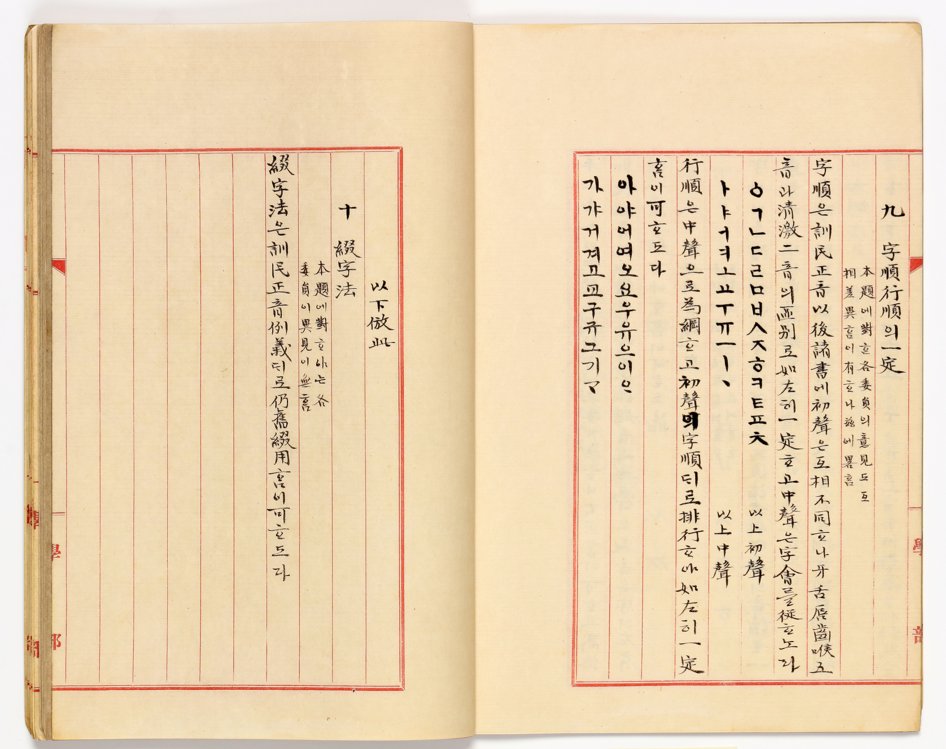 九 字順行順의一定
本題에對ᄒᆞᆫ各委員의意見도互
相差異홈이有ᄒᆞ나玆에畧홈
字順은訓民正音以後諸書에初聲은互相不同ᄒᆞ나牙舌唇齒喉五
音과淸激二音의區別로如左히一定ᄒᆞ고中聲은字會를從ᄒᆞ노라
ㆁㄱㄴㄷㄹㅁㅂㅅㅈㅎㅋㅌㅍㅊ 以上初聲
ㅏㅑㅓㅕㅗㅛㅜㅠㅡㅣㆍ 以上中聲
行順은中聲으로爲綱ᄒᆞ고初聲의字順ᄃᆡ로排行ᄒᆞ야如左히一定
홈이可ᄒᆞ도다
아야어여오요우유으이ᄋᆞ
가갸거겨고교구규그기ᄀᆞ
以下倣此
十 綴字法
本題에對ᄒᆞ야ᄂᆞᆫ各
委員이異見이無홈
綴字法은訓民正音例義ᄃᆡ로仍舊綴用홈이可ᄒᆞ도다
學
部
學
部